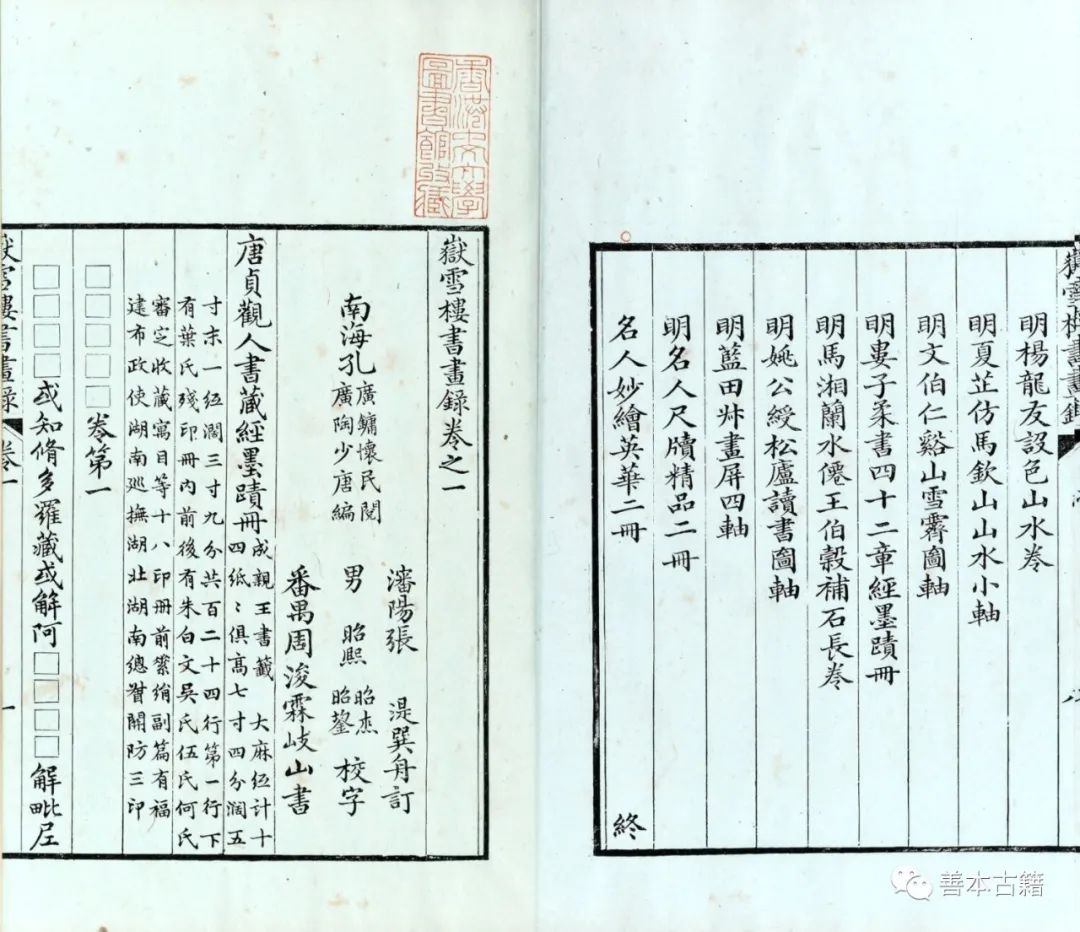 明楊龍友設色山水卷
明夏芷仿馬欽山山水小軸
明文伯仁谿山雪霽圖軸
明婁子柔書四十二章經墨蹟冊
明馬湘蘭水僊王伯穀補石長卷
明姚公綬松廬讀書圖軸
明藍田叔畫屏四軸
明名人尺牘精品二冊
名人妙繪英華二冊
終
香港中文大學
圖書館收藏
嶽雪樓書畫錄卷之一
瀋陽張 湜巽舟訂
南海孔
廣鏞懷民閱
廣陶少唐編
男 昭熙 昭杰 昭鋆 校字
番禺周浚霖岐山書
唐貞觀人書藏經墨蹟冊
成親王書籤 大麻紙計十
四紙〻俱高七寸四分濶五
寸末一紙濶三寸九分共百二十四行第一行下
有葉氏殘印冊內前後有朱白文吳氏伍氏何氏
審定收藏寓目等十八印冊前綮綃副篇有福
建布政使湖南巡撫湖北湖南總督關防三印
□□□□卷第一
□□□□或知脩多羅藏或解阿□□□□解毗尼
嶽雪樓書畫錄 卷一 一
善本古籍